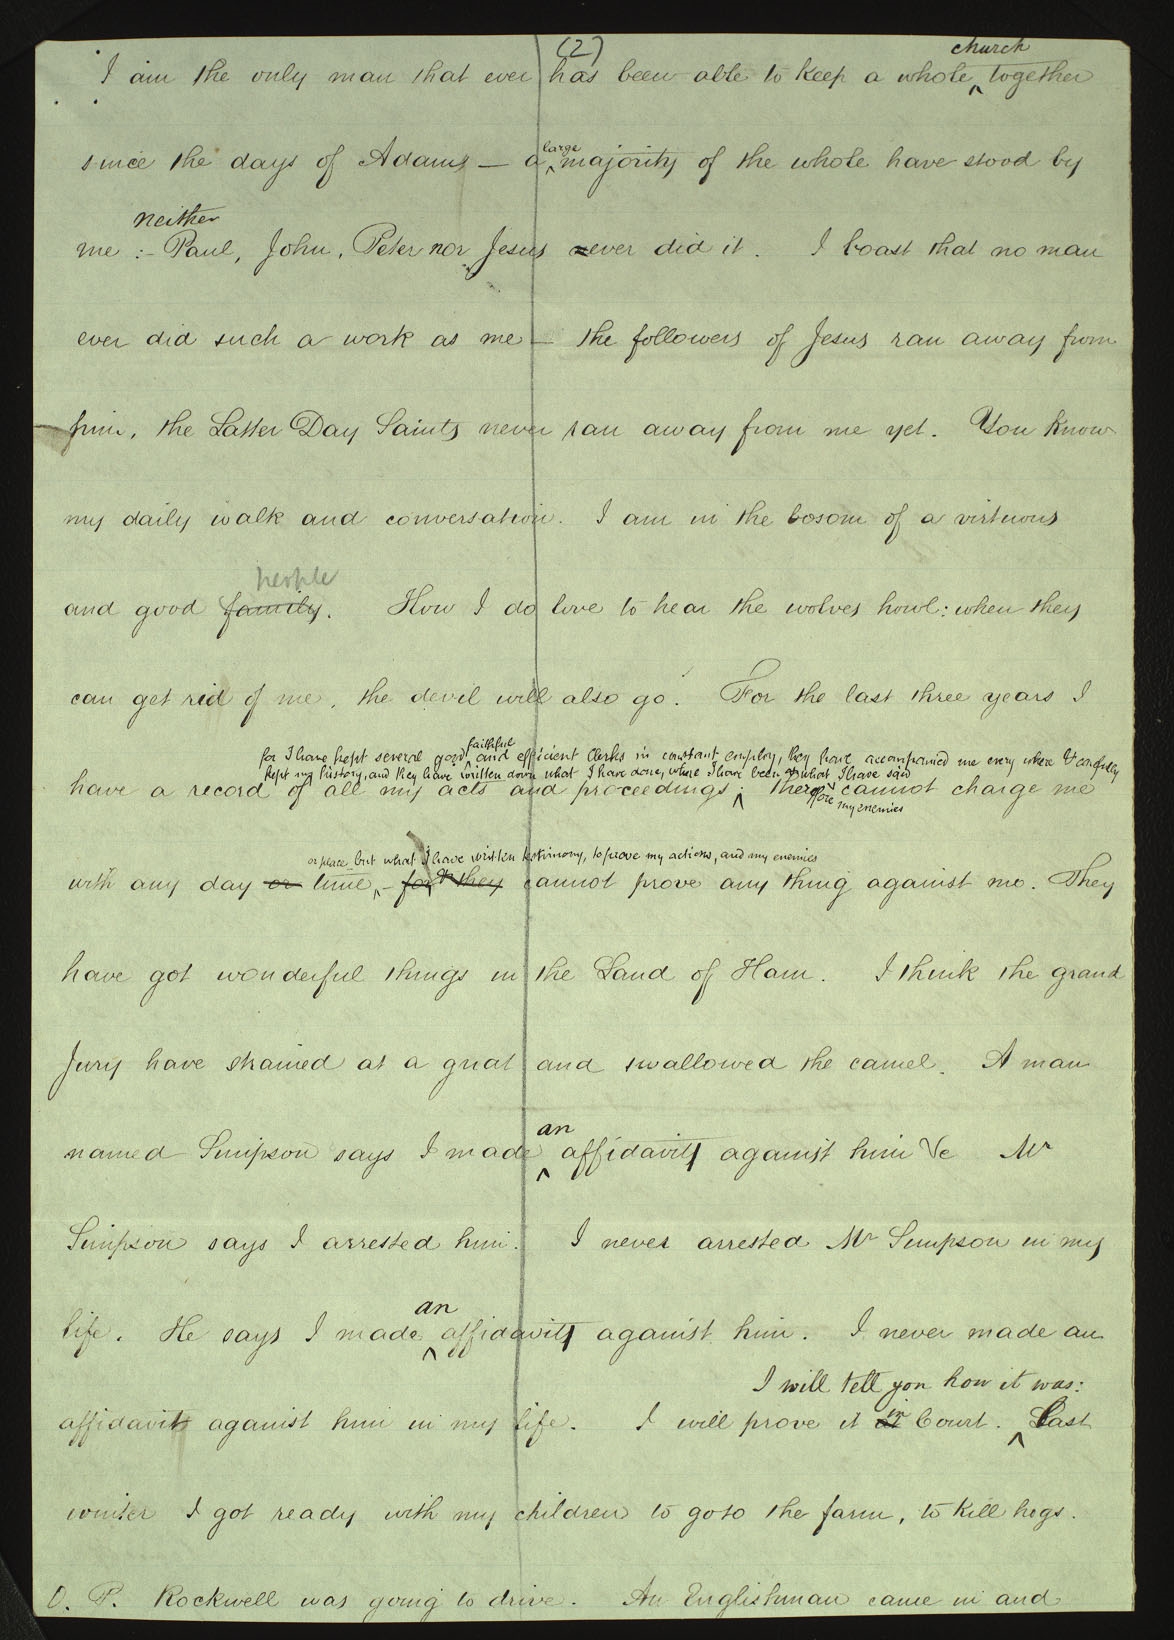 (2)
church
I am the only man that ever has been able to keep a whole ^ together
large
since the days of Adam — a ^ majority of the whole have stood by
neither
me :- Paul, John, Peter nor Jesus never did it. I boast that no man
ever did such a work as me — the followers of Jesus ran away from
him, the Latter Day Saints never ran away from me yet. You know
my daily walk and conversation. I am in the bosom of a virtuous
people
and good family. How I do love to hear the wolves howl: when they
can get rid of me, the devil will also go. For the last three years I
faithful
for I have kept several good ^ and efficient Clerks in constant employ, they have accompanied me every where & carefully
kept my history, and they have written down what I have done, where I have been & what I have said
have a record of all my acts and proceedings ; ^ there cannot charge me
fore my enemies
or place but what I have written testimony, to prove my actions, and my enemies
with any day or time, ^ - for they cannot prove any thing against me. They
have got wonderful things in the Land of Ham. I think the grand
Jury have strained at a gnat and swallowed the camel. A man
an
named Simpson says I made ^ affidavit against him &c Mr
Simpson says I arrested him. I never arrested Mr Simpson in my
an
life. He says I made ^ affidavit against him. I never made an
I will tell you how it was:
in
affidavit against him in my life. I will prove it Court. ^ Last
winter I got ready with my children to go to the farm, to kill hogs.
O. P. Rockwell was going to drive. An Englishman came in and